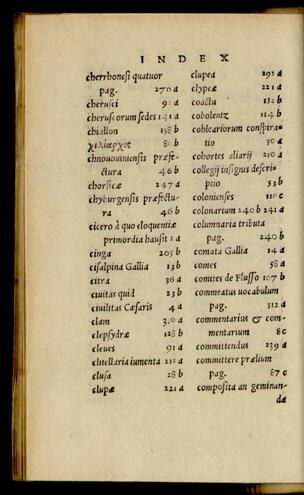 INDEX
cherrhonesi quatuor
pag. 270 a
cherusci 92 a
cheruscorum sedes 141 a
chiallon 158 b
χιλίαρχος 80 b
chnouuiniensis præfe-
ctura 46 b
chorsicæ 247 a
chyburgensis præfectu-
ra 46 b
cicero à quo eloquentiæ
primordia hausit 2 a
cinga 205 b
cisalpina Gallia 13 b
citra 36 a
ciuitas quid 23 b
ciuilitas Cæsaris 4 a
clam 310 a
clepsydræ 128 b
cleues 91 a
clitellaria iumenta 212 a
clusa 28 b
clupæ 221 a
clupea 292 a
clypeæ 221 a
coactu 132 b
cobolentz 114 b
cohlearionum conspira-
tio 30 a
cohortes aliarij 210 a
collegij insignis descri-
ptio 53 b
colonienses 110 c
colonarium 240 b 241 a
columnaria tributa
pag. 240 b
comata Gallia 14 a
comes 58 a
comites de Flusso 107 b
commeatus uocabulum
pag. 312 a
commentarius & com-
mentarium 8 c
committendus 239 a
committere prælium
pag. 87 c
composita an geminan-
da